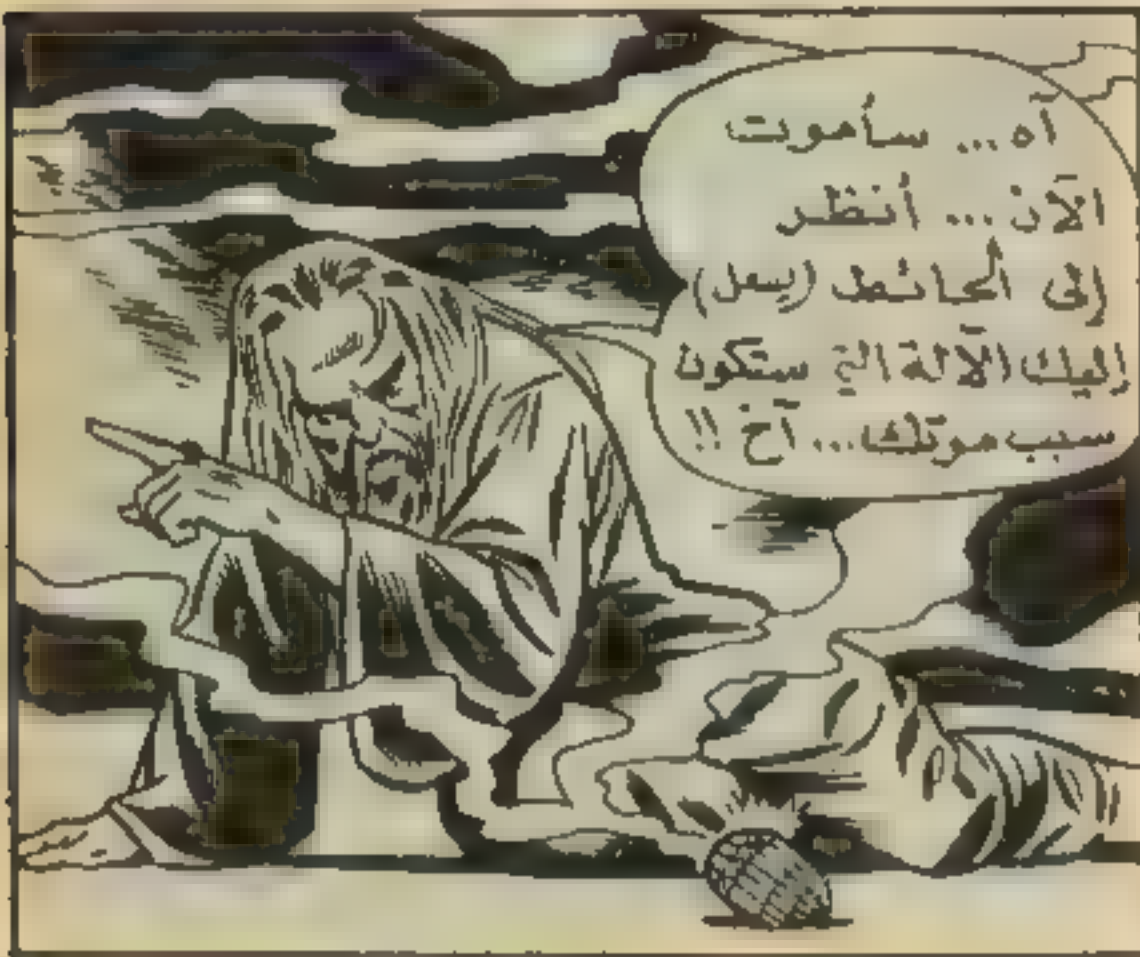 آه... سأموت
الآن... أنظر
إلى الحائط (يسعل)
إليك الآلة التي ستكون
سبب موتك... آخ !!